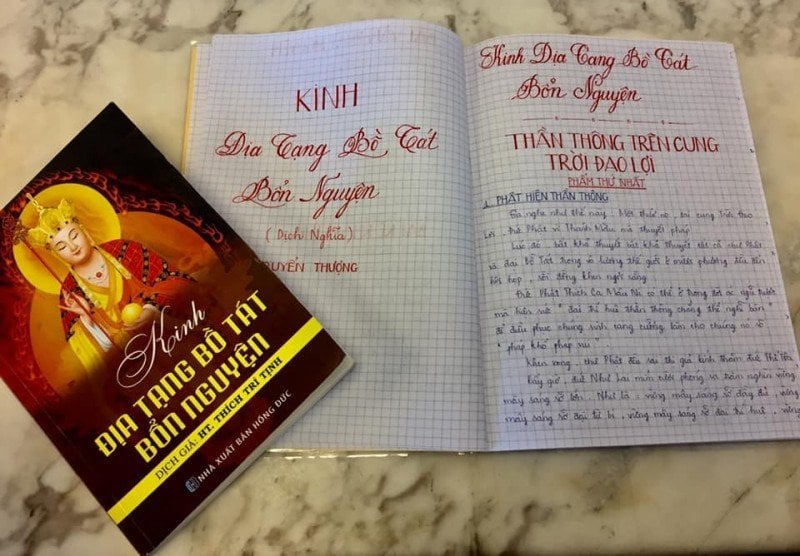 Kinh
ĐỊA TẠNG BỒ TÁT
BỔN NGUYỆN
DỊCH GIẢ: HT. THÍCH TRÍ TỊNH
NHÀ XUẤT BẢN HỒNG ĐỨC
KINH
Địa Tạng Bồ Tát
Bổn Nguyện
( Dịch Nghĩa )
QUYỂN THƯỢNG
Kinh Địa Tạng Bồ Tát
Bổn Nguyện
THẦN THÔNG TRÊN CUNG
TRỜI ĐAO LỢI
PHẨM THỨ NHẤT
1. PHẬT HIỆN THẦN THÔNG
Ta nghe như thế này : Một thuở nọ , tại cung trời Đao
Lợi , đức Phật vì Thánh Mẫu mà thuyết pháp
Lúc đó , bất khả thuyết bất khả thuyết tất cả chư Phật
và đại Bồ Tát trong vô lượng thế giới ở mười phương đều đến
hội họp , rồi đồng khen ngợi rằng
Đức Phật Thích Ca Mâu Ni có thể ở trong đời ác ngũ trược
mà hiện sức " đại trí huệ thần thông chẳng thể nghĩ bàn "
để điều phục chúng sinh cang cường làm cho chúng nó rõ
" pháp khổ pháp vui " .
Khen xong , chư Phật đều sai thị giả kính thăm đức Thế Tôn
Bấy giờ , đức Như Lai mỉm cười phóng ra trăm nghìn vừng
mây sáng rỡ lớn . Như là : vừng mây sáng rỡ đầy đủ , vừng
mây sáng rỡ đại từ bi , vừng mây sáng rỡ đại trí huệ , vừng